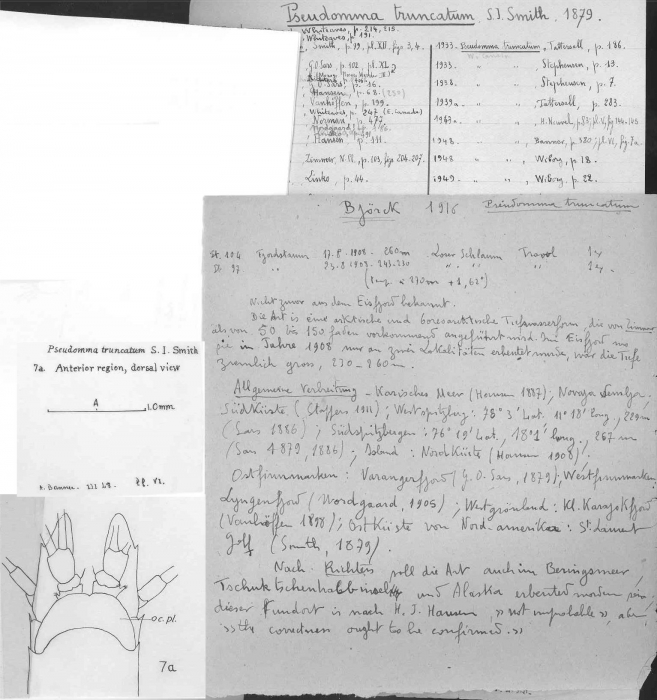 Pseudomma truncatum S.I. Smith, 1879.
Whiteaves, p. 214, 215.
Whiteaves, p. 191.
Smith, p. 99, pl. XII, figs 3, 4.
G.O. Sars, p. 102, pl. XL
G.O. Sars, p. 16.
Hansen, p. 68.
Vanhöffen, p. 199.
Whiteaves, p. 247 (E. Canada)
Norman, p. 477.
Hansen, p. 111.
Zimmer, N.P., p. 103, fig. 204-207.
Linko, p. 44.
1933. Pseudomma truncatum, Tattersall, p. 186.
1933. " " , Stephensen, p. 13.
1938. " " , Stephensen, p. 7.
1939a. " " , Tattersall, p. 283.
" " , H. Nouvel, p. 87, pl. V, fig 144-145
1948. " " , Banner, p. 380; pl. VI, fig. 7a
1948 " " , Wiborg, p. 18.
1949. " " , Wiborg, p. 22.
Björck 1916 Pseudomma truncatum
St. 104 Fjordstamm 17.8.1908 260m Loser Schlamm Trawl
St. 97 " 23.8.1908 243-230 " " "
Nicht zuvor aus dem Eisfjord bekannt.
Die Art is eine arktische und boreoarktische Tiefwasserform, die von Zimmer
als von 50 bis 150 faden vorkommend angeführt wird. Im Eisfjord wo
sie in Jahre 1908 nur an zwei Lokalitäten erbeutet wurde, war die Tiefe
ziemlich gross, 230-260m.
Allgemeine Verbreitung - Karisches Meer (Hansen 1887); Novaja Semlja:
Südküste (Stappers 1911); Westspitzbg: 78° 3' Lat. 11° 18' long., 229m
(Sars 1886); Südspitzbergen: 76° 19' Lat., 18° 1' long., 267 m
(Sars 1879, 1886); Island: Nordküste (Hansen 1908).
Ostfinnmarken: Varangerfjord (G.O. Sars, 1879); Westfinnmarken:
Lyngenfjord (Nordgaard, 1905); Westgrönland: Kl. Karajakfjord
(Vanhöffen 1898); Ostküste von Nord-amerika: St. Laurent
Golf (Smith, 1879).
Nach Richters soll die Art auch im Beringsmeer,
Tschuktschenhalbinsel und Alaska erbeutet worden sein
dieser Fundort is nach H.J. Hansen, « not improbable », aber
« the correctness ought to be confirmed. »
Pseudomma truncatum S. I. Smith
7a. Anterior region, dorsal view
A
1.0mm
A. Banner. III 48. Pl. VI.
oc. pl.
7a